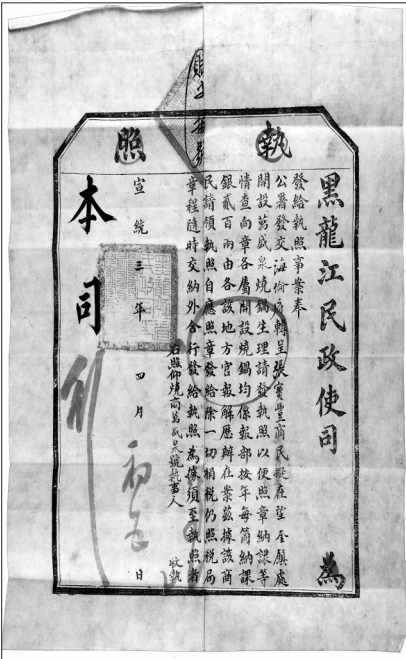 執照
黑龍江民政使司 為
發給執照事案奉
公署發交海倫府轉呈張寶豐商民擬在望奎鎮處
開設萬盛泉燒鍋生理請發執照以便照章納課等
情查向章各屬開設燒鍋均係報部按年每筩納課
銀貳百兩由各該地方官報解歷辦在案茲據該商
民請領執照自應照章發給除一切捐稅仍照稅局
章程隨時交納外合行發給執照為據須至執照者
右照仰燒商萬盛泉號執事人 收執
宣統三年四月初 日
本司